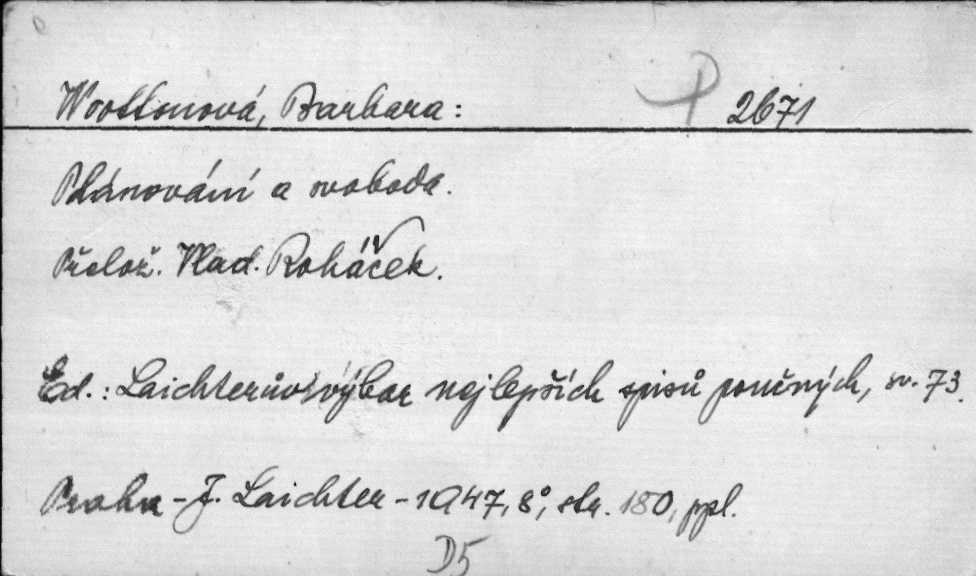 Woottonová, Barbara: P 2671
Plánování a svoboda.
Přelož. Vlad. Roháček.
Ed.: Laichterův výbor nejlepších spisů poučných, sv. 73.
Praha - J. Laichter - 1947, 8°, str. 180, ppl.
D5